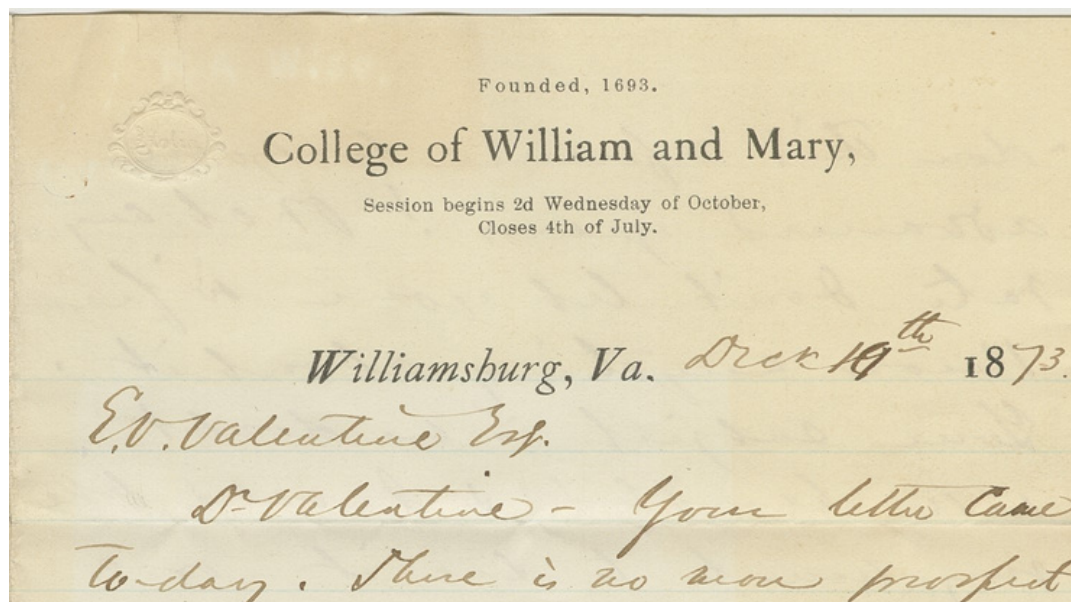 Founded, 1693.
College of William and Mary,
Session begins 2d Wednesday of October,
Closes 4th of July.
Williamsburg, Va. Decr 19th 1873.
E.V. Valentine Esq.
Dr Valentine - Your letter came
to-day. There is no more prospect